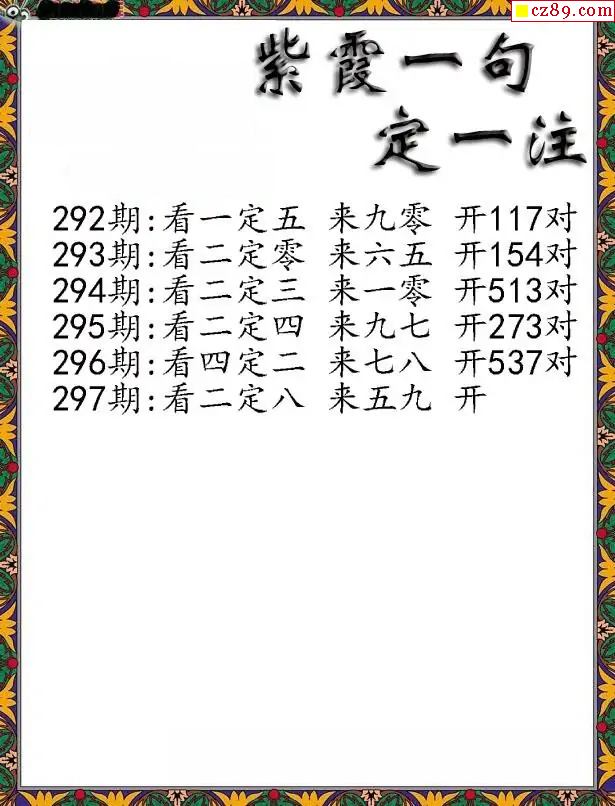 cz89.com
紫霞一句
定一注
292期:看一定五 来九零 开117对
293期:看二定零 来六五 开154对
294期:看二定三 来一零 开513对
295期:看二定四 来九七 开273对
296期:看四定二 来七八 开537对
297期:看二定八 来五九 开